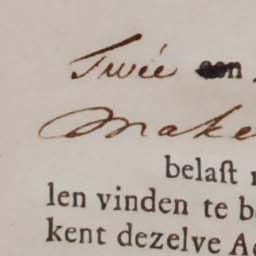 Twée een
Make
belaſt
len vinden te b
kent dezelve A